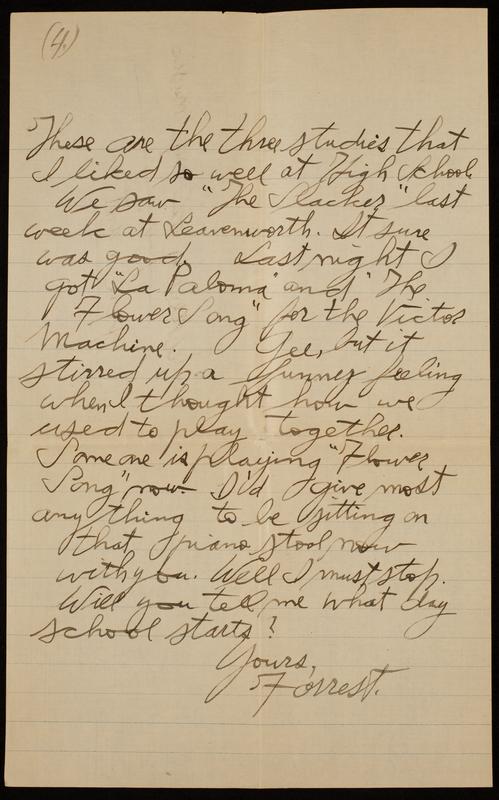 (4.)
These are the three studies that
I liked so well at High School.
We saw "The Slacker" last
week at Leavenworth. It sure
was good. Last night I
got "La Paloma" and "The
Flower Song" for the Victor
Machine. Gee, but it
stirred up a funny feeling
when I thought how we
used to play together.
Some one is playing "Flower
Song" now. I'd give most
any thing to be sitting on
that piano stool now
with you. Well I must stop.
Will you tell me what day
school starts?
Yours,
Forrest.